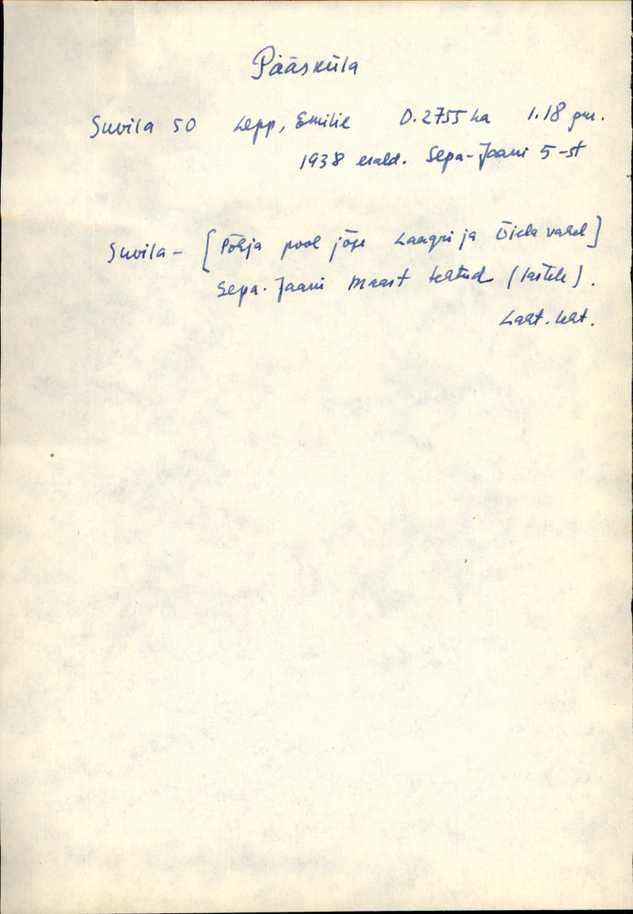 Pääsküla
Suvila 50 Lepp, Emilie 0.2755 ha 1.18 grr.
1938 erald. Sepa-Jaani 5-st
Suvila - [Põhja pool jõge Laagri ja vahel]
Sepa-Jaani maast (lastele).
Kat.